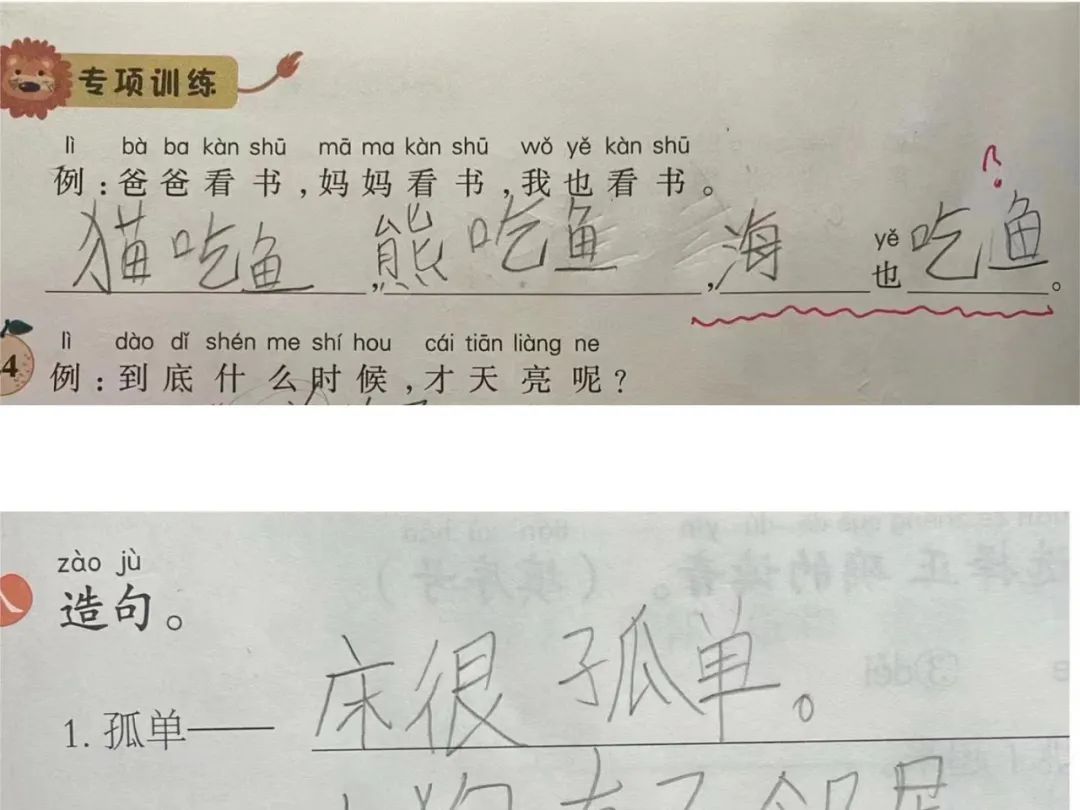 专项训练
lì bà ba kàn shū mā ma kàn shū wǒ yě kàn shū
例：爸爸看书，妈妈看书，我也看书。
?
yě
猫吃鱼，熊吃鱼，海也吃鱼。
lì dào dǐ shén me shí hou cái tiān liàng ne
4 例：到底什么时候，才天亮呢？
zào jù
造句。
1. 孤单——床很孤单。